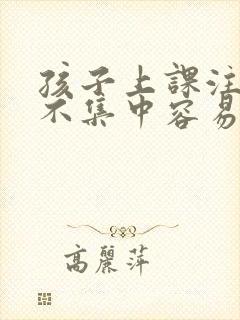 孩子上課注
不集中容易
高麗萍